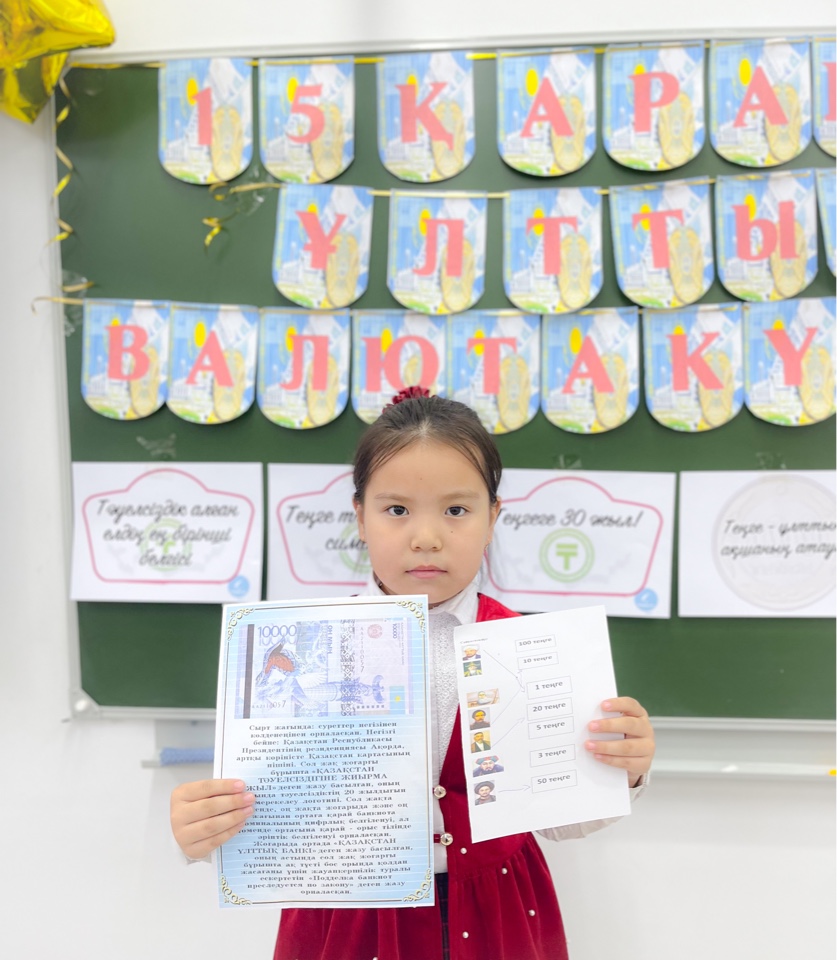 15 ҚАРА
ҰЛТТЫ
ВАЛЮТАКҮ
Тәуелсіздік алған
елдің ең бірінші
белгісі
Теңге т
сим
Теңгеге 30 жыл!
Теңге - ұлттық
ақшаның атау
10000
10000
ОН МЫҢ
Сырт жағында: суреттер негізінен
көлденеңінен орналасқан. Негізгі
бейне: Қазақстан Республикасы
Президентінің резиденциясы Ақорда,
артқы көріністе Қазақстан картасының
пішіні. Сол жақ жоғарғы
бұрышта «ҚАЗАҚСТАН
ТӘУЕЛСІЗДІГІНЕ ЖИЫРМА
ЖЫЛ» деген жазу басылған, оның
ында тәуелсіздіктің 20 жылдығын
мерекелеу логотипі. Сол жақта
енде, оң жақта жоғарыда және оң
жағынан ортаға қарай банкнота
оминалының цифрлық белгіленуі, ал
төменде ортасына қарай - орыс тілінде
әріптік белгіленуі орналасқан.
Жоғарыда ортада «ҚАЗАҚСТАН
ҰЛТТЫҚ БАНКІ» деген жазу басылған,
оның астында сол жақ жоғарғы
бұрышта ақ түсті бос орында қолдан
жасағаны үшін жауапкершілік туралы
ескертетін «Подделка банкнот
преследуется по закону» деген жазу
орналасқан.
100 теңге
10 теңге
1 теңге
20 теңге
5 теңге
3 теңге
50 теңге